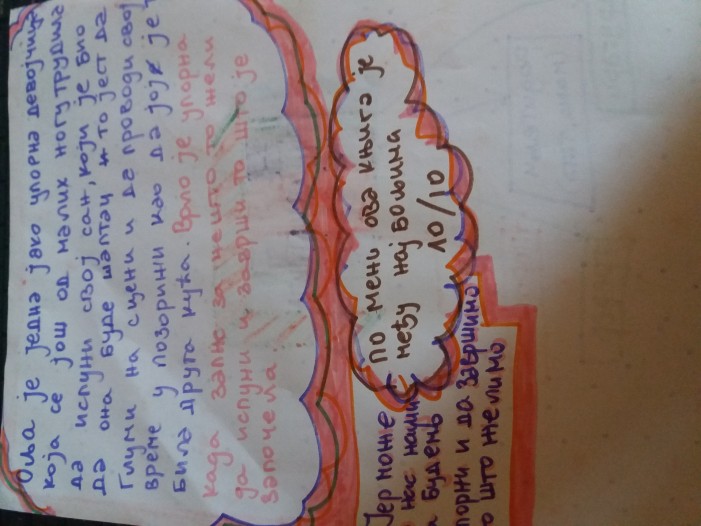 Оља је једна јако упорна девојчица
која се још од малих ногу трудила
да испуни свој сан, који је био
да она буде шаптач и то јест да
глуми на сцени и да проводи свој
време у позоришту као да јој је
била друга кућа. Врло је упорна
када запне за нешто то жели
да испуни и заврши то што је
започела.
По мени ова књига је
међу најбољима
10/10
Јер може
нас
будемо
порни и да завршимо
о што желимо